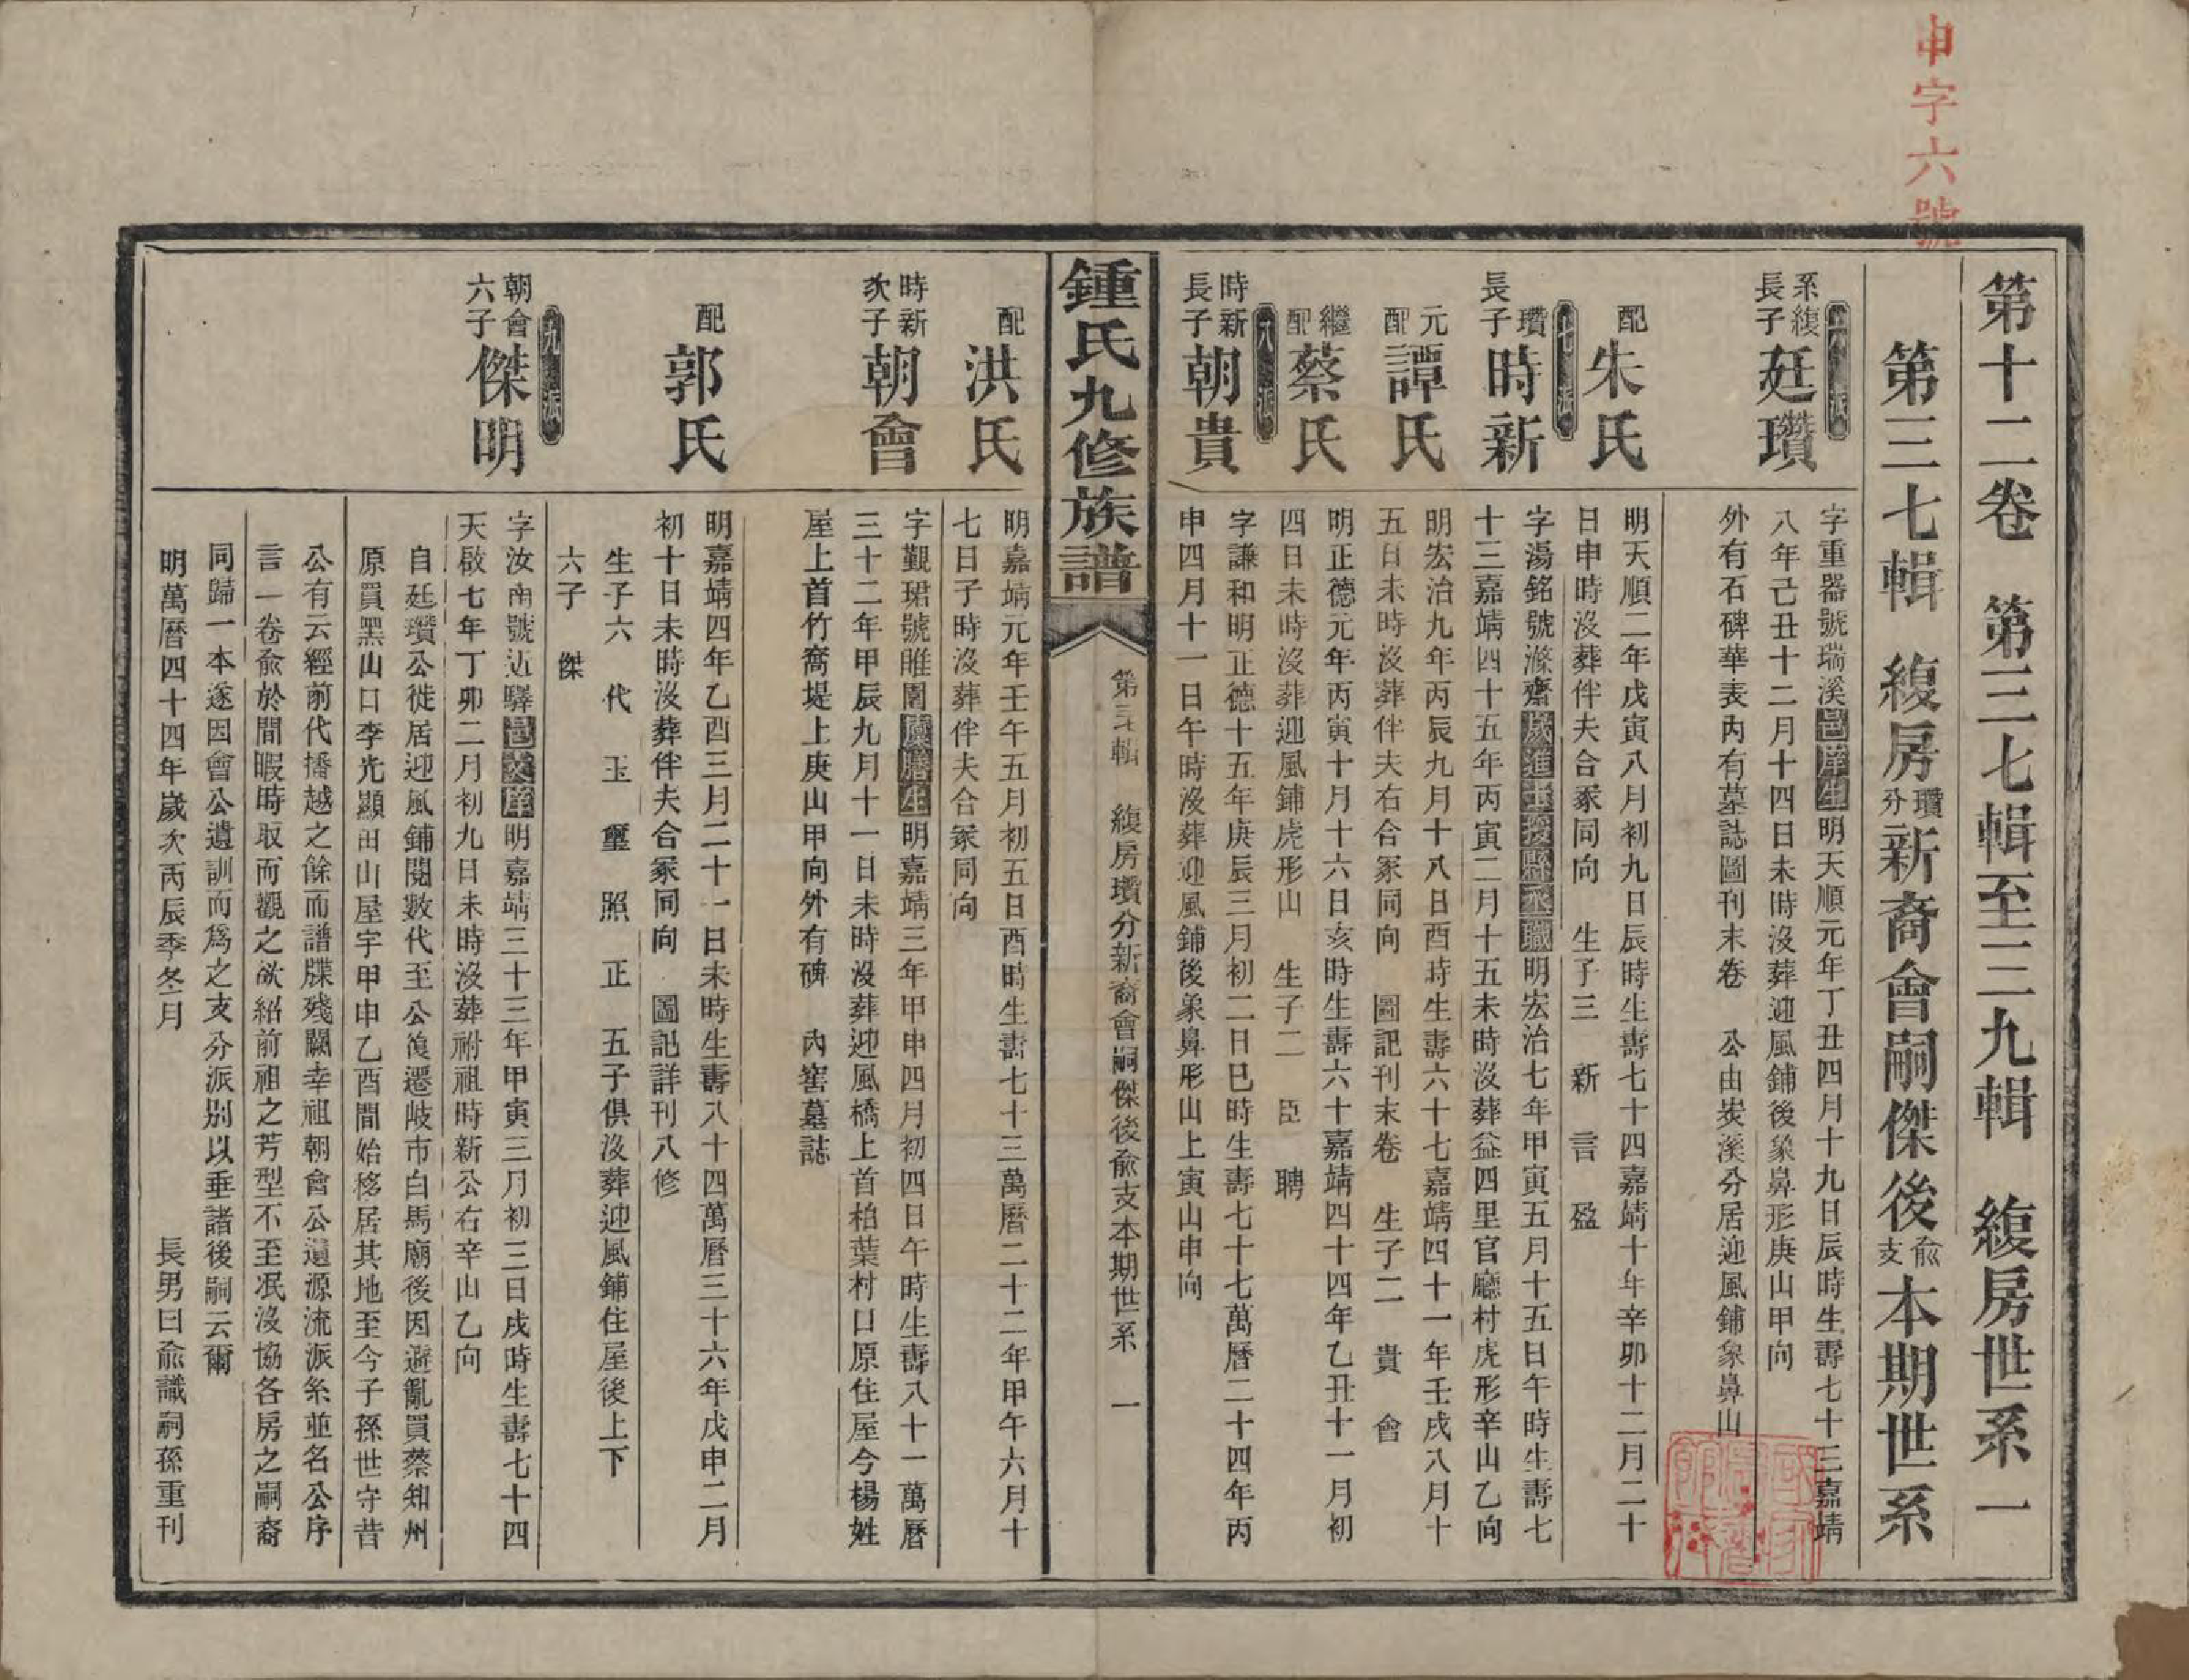 申字六號
第十二卷 第三七輯至三九輯 緮房世系一
第三七輯 緮房瓚分新裔會嗣傑後兪支本期世系
六派
系緮長子 廷瓚
字重器號瑞溪邑庠生明天順元年丁丑四月十九日辰時生壽七十三嘉靖
八年己丑十二月十四日未時沒葬迎風鋪後象鼻形庚山甲向
外有石碑華表內有墓誌圖刊末卷 公由炭溪分居迎風鋪象鼻山
配 朱氏
明天順二年戊寅八月初九日辰時生壽七十四嘉靖十年辛卯十二月二十
日申時沒葬伴夫合冢同向 生子三 新 言 盈
七派
瓚長子 時新
字湯銘號滌齋歲進士授縣丞職明宏治七年甲寅五月十五日午時生壽七
十三嘉靖四十五年丙寅二月十五未時沒葬益四里官廳村虎形辛山乙向
元配 譚氏
明宏治九年丙辰九月十八日酉時生壽六十七嘉靖四十一年壬戌八月十
五日未時沒葬伴夫右合冢同向 圖記刊末卷 生子二 貴 會
繼配 蔡氏
明正德元年丙寅十月十六日亥時生壽六十嘉靖四十四年乙丑十一月初
四日未時沒葬迎風鋪虎形山 生子二 臣 聘
八派
時新長子 朝貴
字謙和明正德十五年庚辰三月初二日巳時生壽七十七萬曆二十四年丙
申四月十一日午時沒葬迎風鋪後象鼻形山上寅山申向
鍾氏九修族譜
第三七輯 緮房瓚分新裔會嗣傑後兪支本期世系 一
配 洪氏
明嘉靖元年壬午五月初五日酉時生壽七十三萬曆二十二年甲午六月十
七日子時沒葬伴夫合冢同向
時新次子 朝會
字覲珺號睢園廩膳生明嘉靖三年甲申四月初四日午時生壽八十一萬曆
三十二年甲辰九月十一日未時沒葬迎風橋上首柏葉村口原住屋今楊姓
屋上首竹蔃堤上庚山甲向外有碑 內窖墓誌
配 郭氏
明嘉靖四年乙酉三月二十一日未時生壽八十四萬曆三十六年戊申二月
初十日未時沒葬伴夫合冢同向 圖記詳刊八修
生子六 代 玉 璽 照 正 五子俱沒葬迎風鋪住屋後上下
六子 傑
九派
朝會六子 傑明
字汝南號近驛邑文庠明嘉靖三十三年甲寅三月初三日戌時生壽七十四
天啟七年丁卯二月初九日未時沒葬祔祖時新公右辛山乙向
自廷瓚公徙居迎風鋪閱數代至公復遷岐市白馬廟後因避亂買蔡知州
原買黑山口李光顯田山屋宇甲申乙酉間始移居其地至今子孫世守昔
公有云經前代播越之餘而譜牒殘闕幸祖朝會公遺源流派系並名公序
言一卷兪於間暇時取而觀之欲紹前祖之芳型不至泯沒協各房之嗣裔
同歸一本遂因會公遺訓而爲之支分派別以垂諸後嗣云爾
明萬曆四十四年歲次丙辰季冬月 長男曰兪識嗣孫重刊